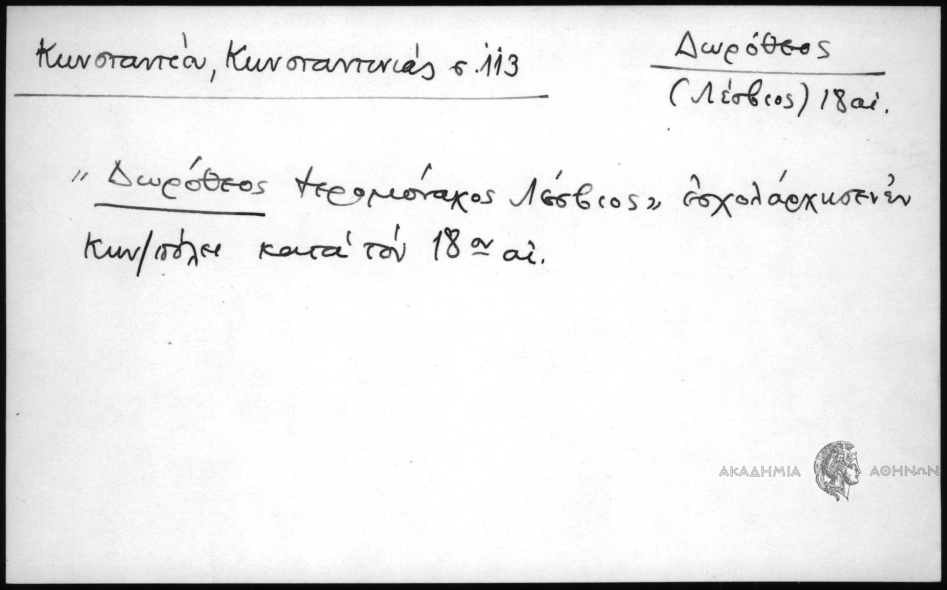 Κωνσταντίου, Κωνσταντινιάς σ. 113
Δωρόθεος
(Λέσβιος) 18 αἰ.
" Δωρόθεος Ἱερομόναχος Λέσβιος" ἐσχολάρχησεν ἐν
Κων/πόλει κατά τόν 18ον αἰ.
ΑΚΑΔΗΜΙΑ ΑΘΗΝΩΝ